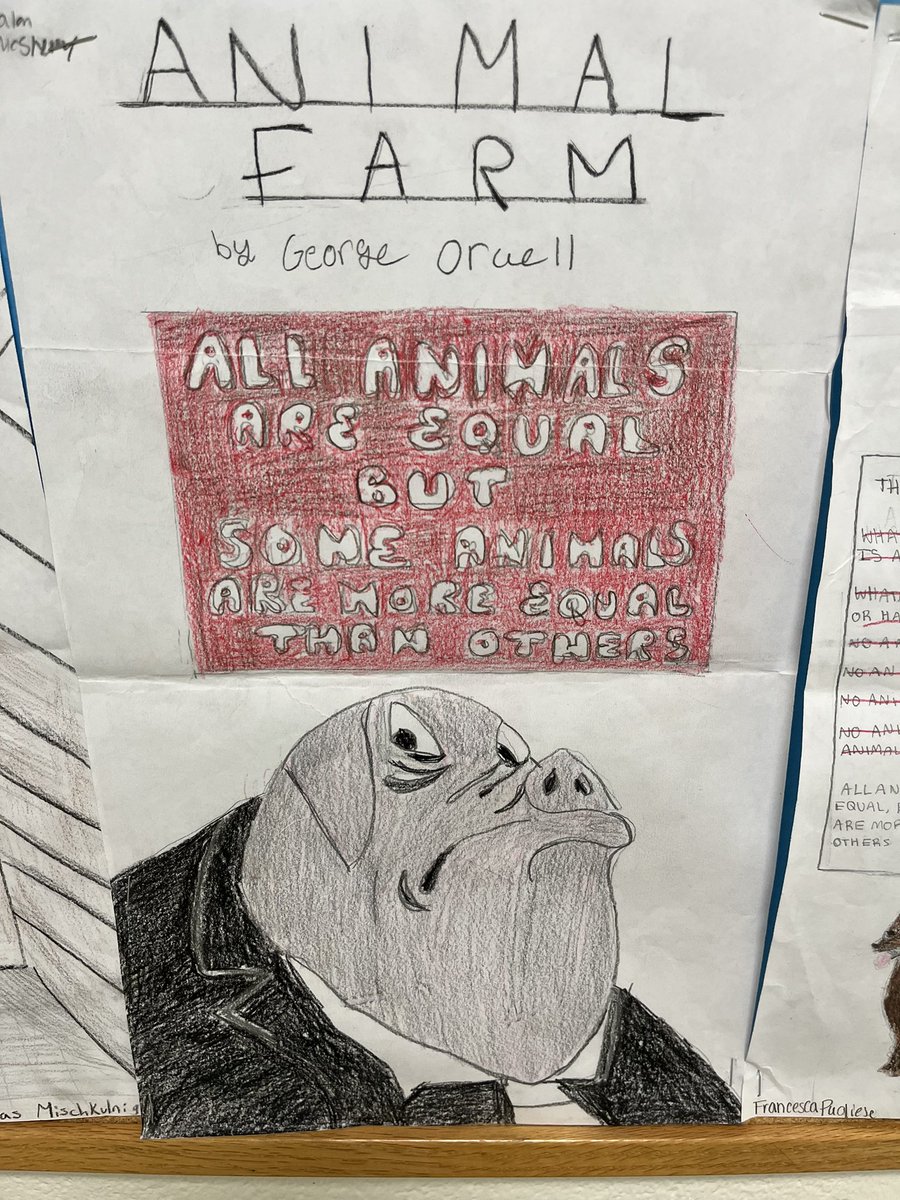 ANIMAL
FARM
by George Orwell
ALL ANIMALS
ARE EQUAL
BUT
SOME ANIMALS
ARE MORE EQUAL
THAN OTHERS
TH
WHA
IS A
WHAT
OR HA
NO A
NO AN
NO ANI
NO ANI
ANIMAL
ALL AN
EQUAL,
ARE MOR
OTHERS
as Mischkulnig
Francesca Pugliese